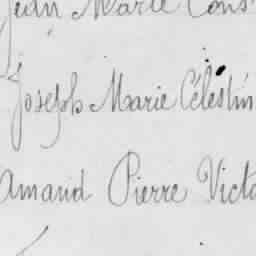 Jean Marie Cons
Joseph Marie Célestin
Amand Pierre Victo